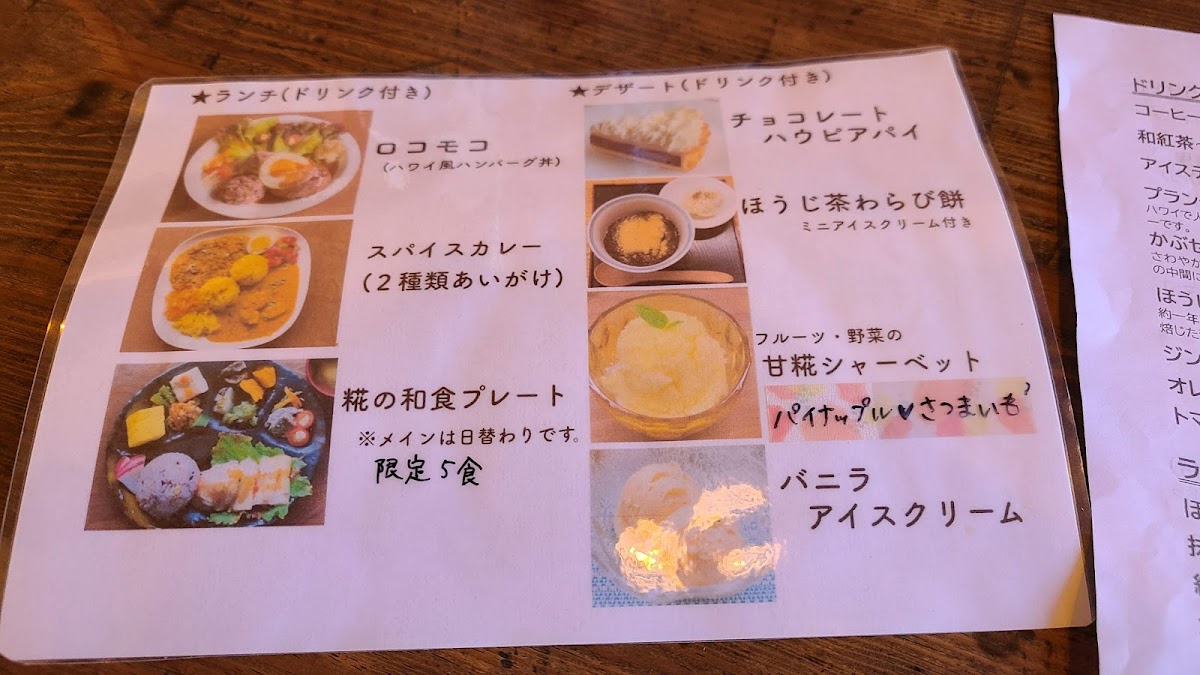 ★ランチ(ドリンク付き)
ロコモコ
(ハワイ風ハンバーグ丼)
スパイスカレー
(2種類あいがけ)
糀の和食プレート
※メインは日替わりです。
限定5食
★デザート(ドリンク付き)
チョコレート
ハウピアパイ
ほうじ茶わらび餅
ミニアイスクリーム付き
フルーツ・野菜の
甘糀シャーベット
パイナップル♥さつまいも
バニラ
アイスクリーム
ドリンク
コーヒー
和紅茶
アイス
プラン
ハワイで
ーです。
かぶせ
さわやか
の中間に
ほうじ
約一年
焙じた
ジン
オレ
トマ
ラ
ほ
抹